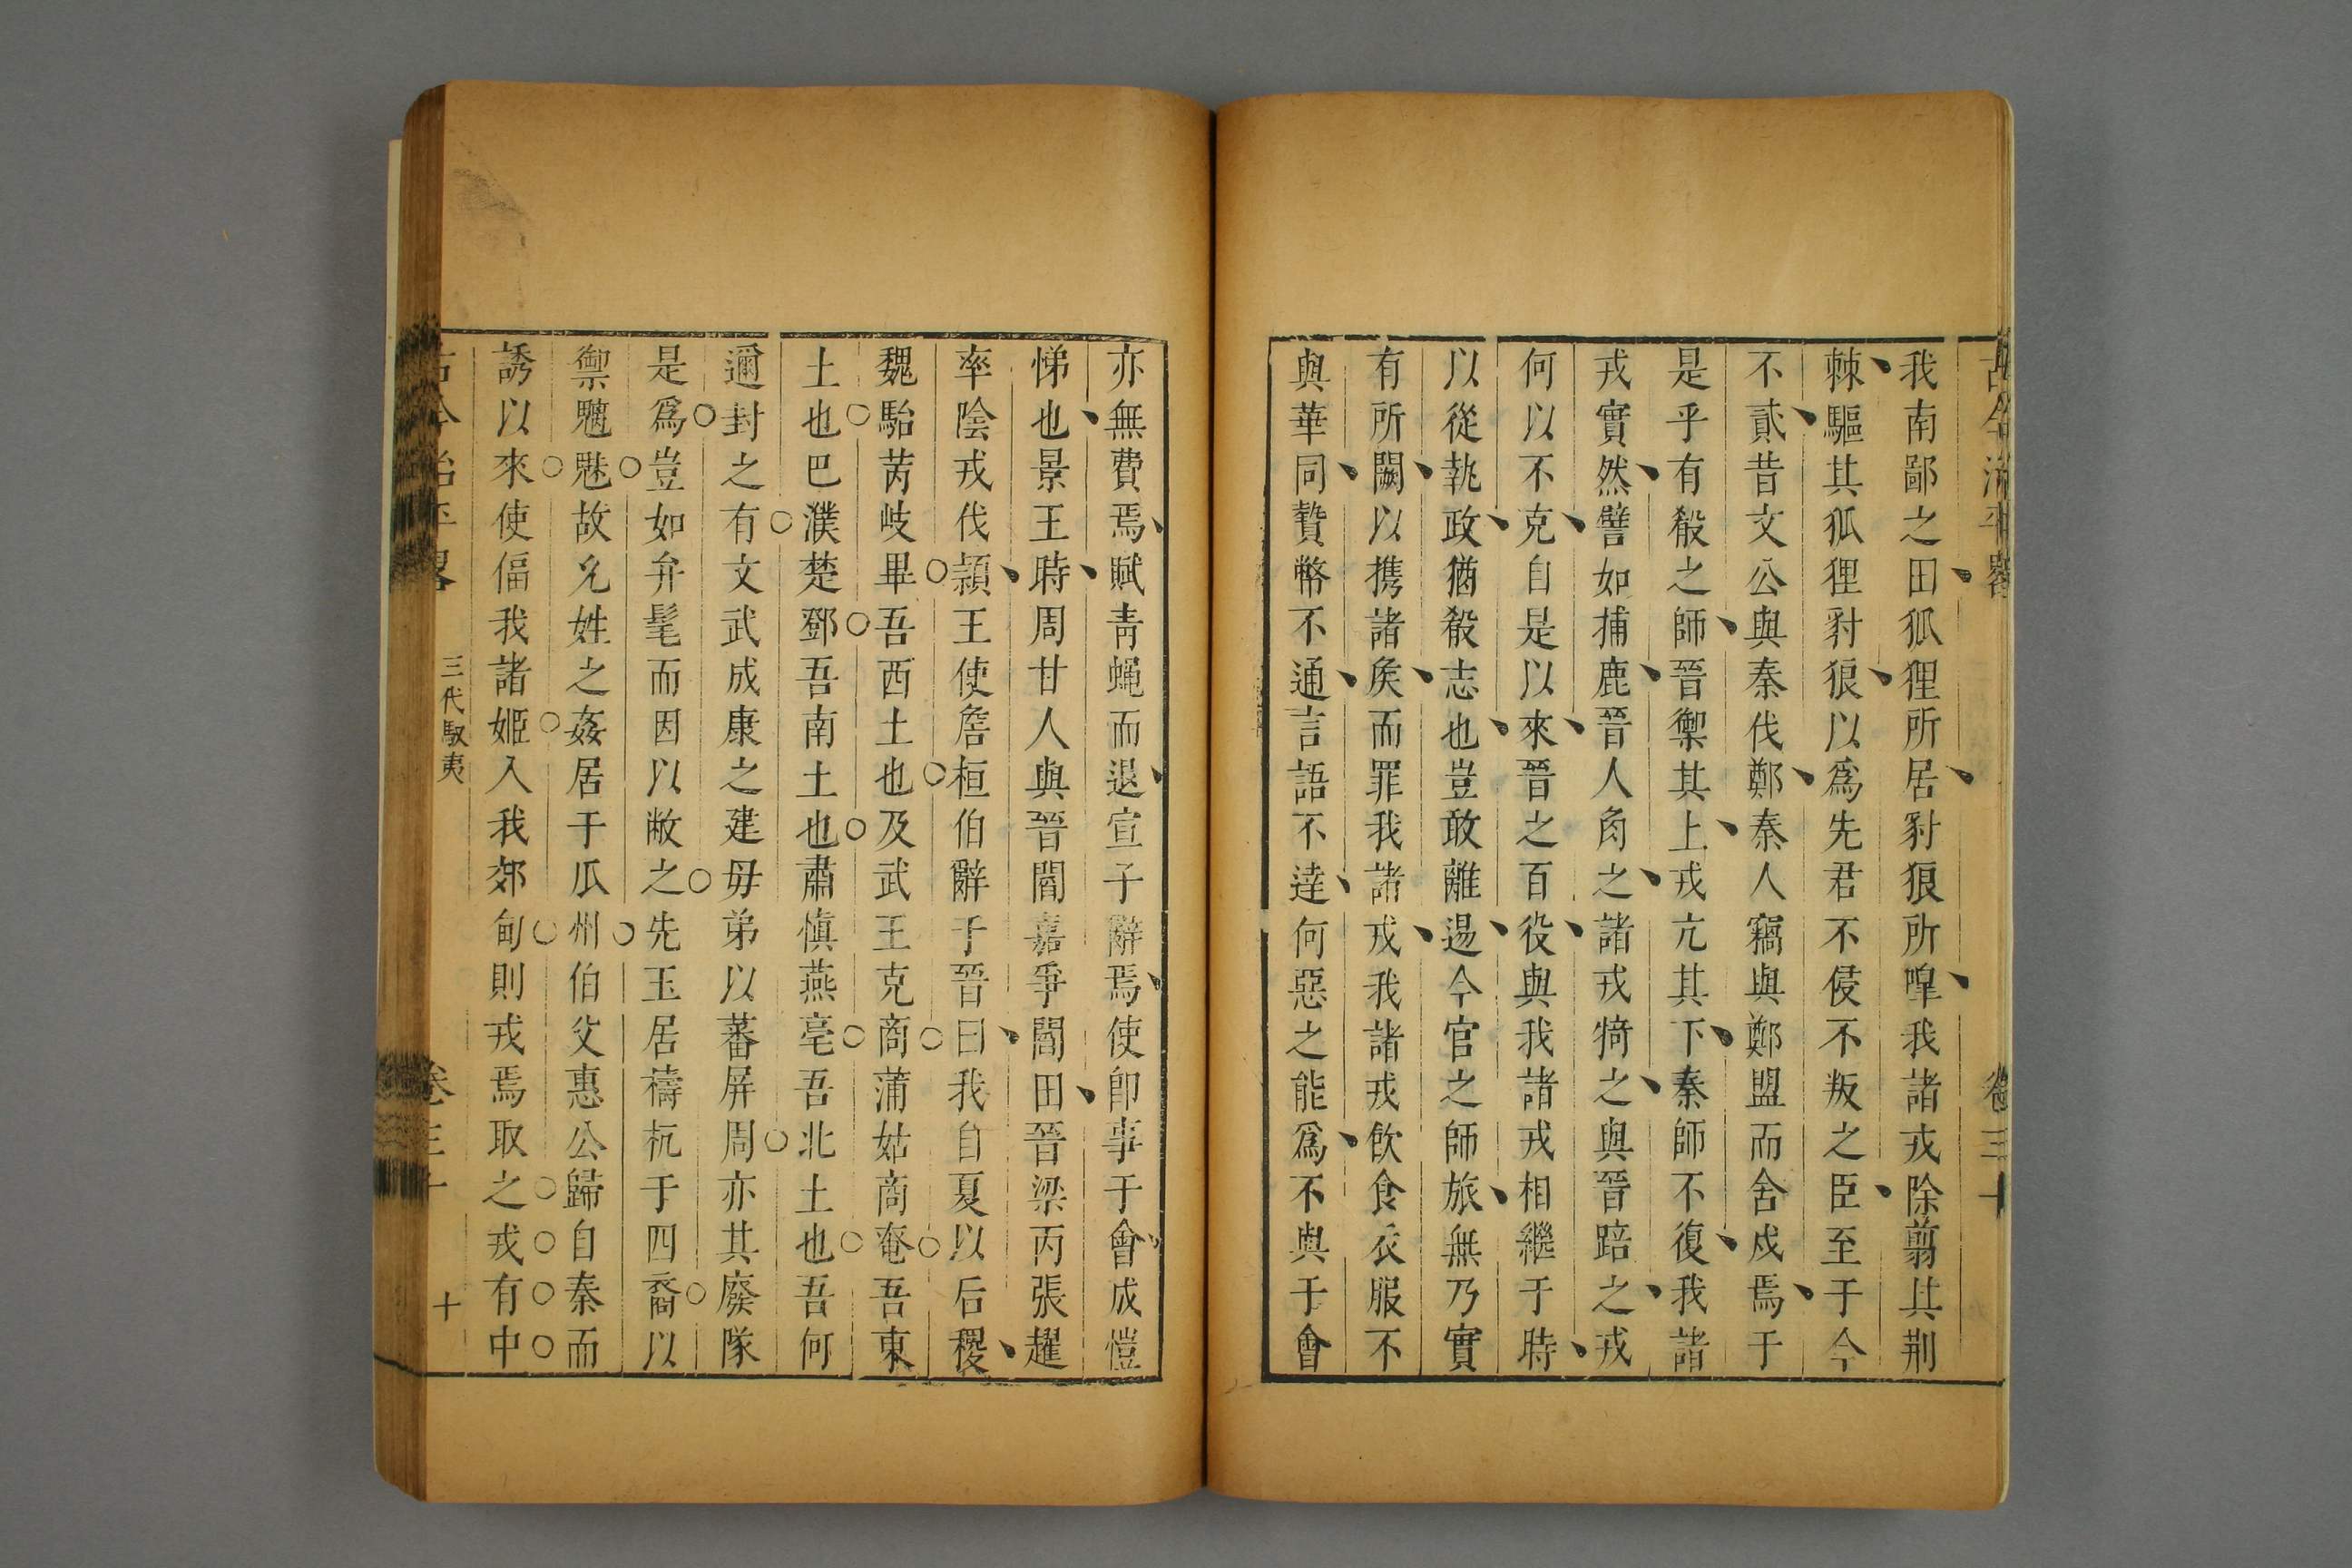 古今治平畧 卷三十
我南鄙之田狐狸所居豺狼所嘷我諸戎除翦其荆
棘驅其狐狸豺狼以爲先君不侵不叛之臣至于今
不貳昔文公與秦伐鄭秦人竊與鄭盟而舍戍焉于
是乎有殽之師晉禦其上戎亢其下秦師不復我諸
戎實然譬如捕鹿晉人角之諸戎掎之與晉踣之戎
何以不克自是以來晉之百役與我諸戎相繼于時
以從執政猶殽志也豈敢離逷今官之師旅無乃實
有所闕以携諸矦而罪我諸戎我諸戎飲食衣服不
與華同贄幣不通言語不達何惡之能爲不與于會
亦無費焉賦青蝇而退宣子辭焉使卽事于會成愷
悌也景王時周甘人與晉閻嘉爭閻田晉梁丙張趯
率陰戎伐潁王使詹桓伯辭于晉曰我自夏以后稷
魏駘芮岐畢吾西土也及武王克商蒲姑商奄吾東
土也巴濮楚鄧吾南土也肅愼燕亳吾北土也吾何
邇封之有文武成康之建毋弟以蕃屏周亦其廢隊
是爲豈如弁髦而因以敝之先王居檮杌于四裔以
禦魑魅故允姓之姦居于瓜州伯父惠公歸自秦而
誘以來使偪我諸姬入我郊甸則戎焉取之戎有中
古今治平畧 三代馭夷 卷三十 十